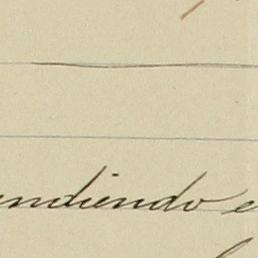 ndiendo e